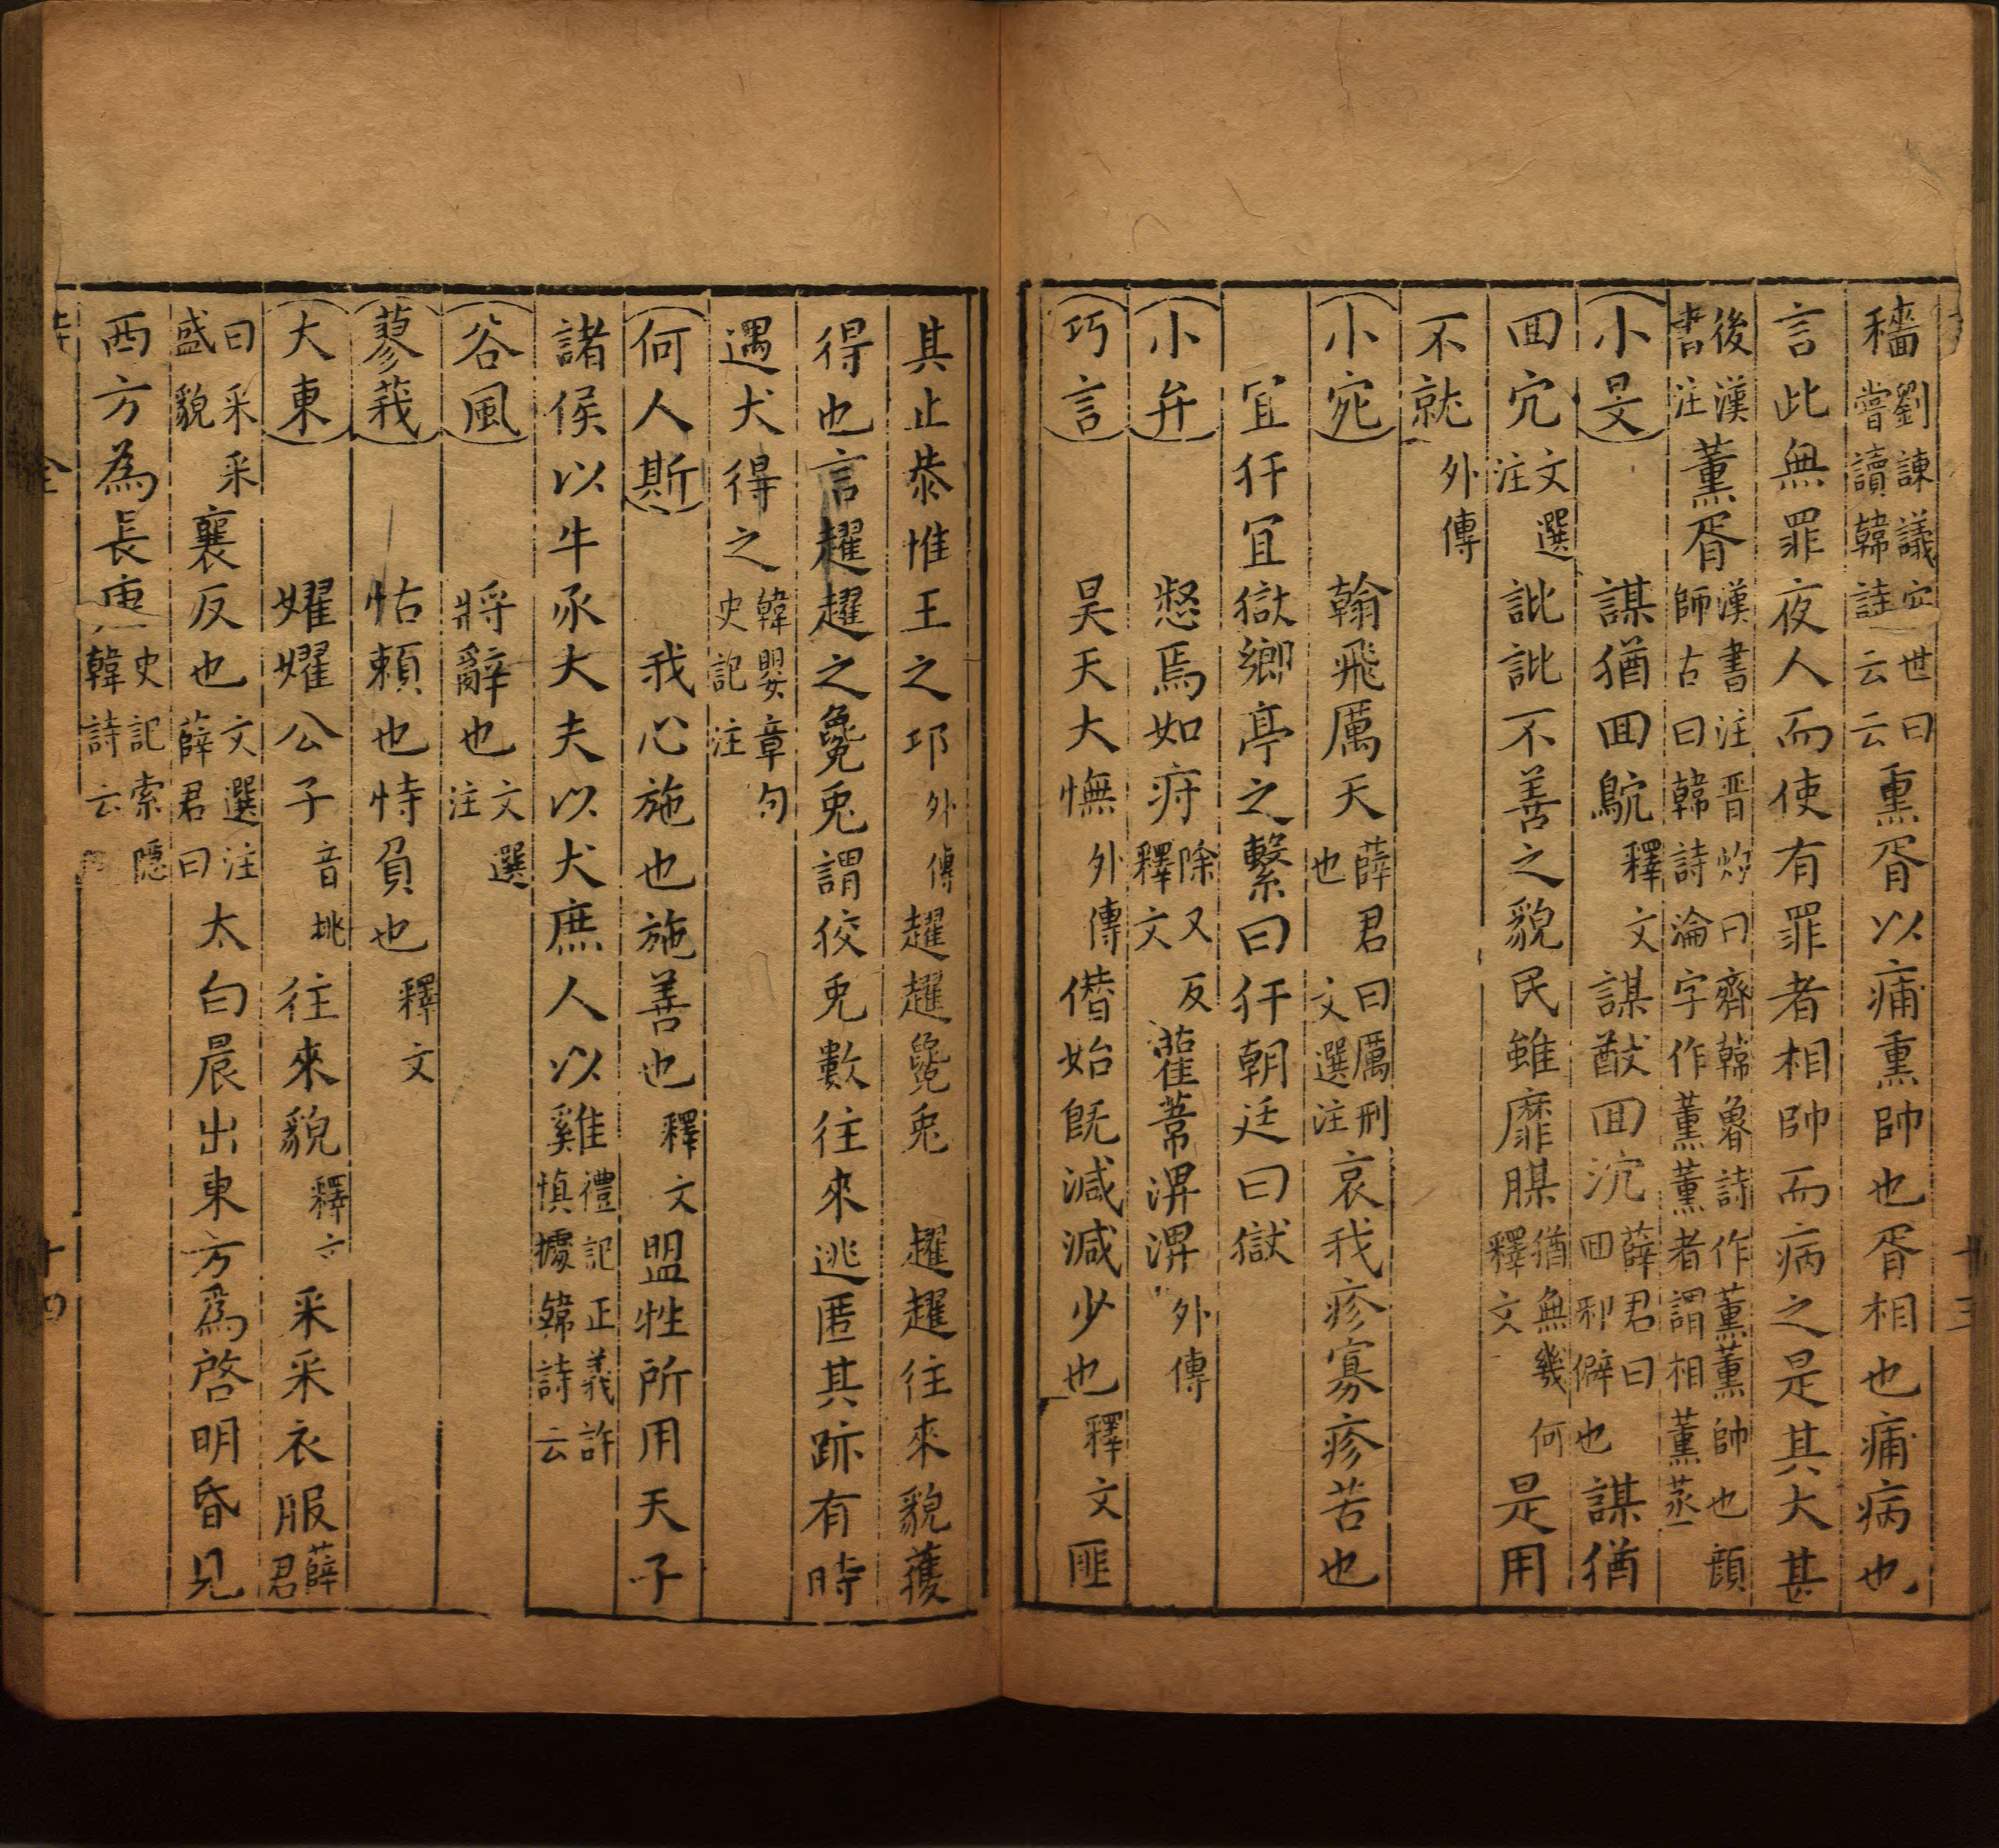 穡劉諫議定世曰嘗讀韓詩云云熏胥以痡熏帥也胥相也痡病也
言此無罪夜人而使有罪者相帥而病之是其大甚
後漢書注薰胥漢書注晋灼曰齊韓魯詩作薰薰帥也顔師古曰韓詩淪字作薰薰者謂相薰蒸
小旻 謀猶回鴥釋文謀猷回泬薛君曰回邪僻也謀猶
回宂文選注訿訿不善之貌民雖靡腜猶無幾何釋文是用
不就外傳
小宛 翰飛厲天薛君曰厲刑也文選注哀我疹寡疹苦也
宜犴宜獄鄉亭之繫曰犴朝廷曰獄
小弁 惄焉如疛除又反釋文雚葦淠淠外傳
巧言 昊天大憮外傳僭始旣減減少也釋文匪
其止恭惟王之邛外傳趯趯毚兎 趯趯往來貌獲
得也言趯趯之毚兎謂狡兎數往來逃匿其跡有時
遇犬得之韓嬰章句史記注
何人斯 我心施也施善也釋文盟牲所用天子
諸侯以牛豕大夫以犬庶人以雞禮記正義許慎據韓詩云
谷風 將辭也文選注
蓼莪 怙賴也恃負也釋文
大東 嬥嬥公子音挑往來貌釋文采采衣服薛君
曰采采盛貌襄反也文選注薛君曰太白晨出東方爲啓明昏見
西方為長庚史記索隱韓詩云